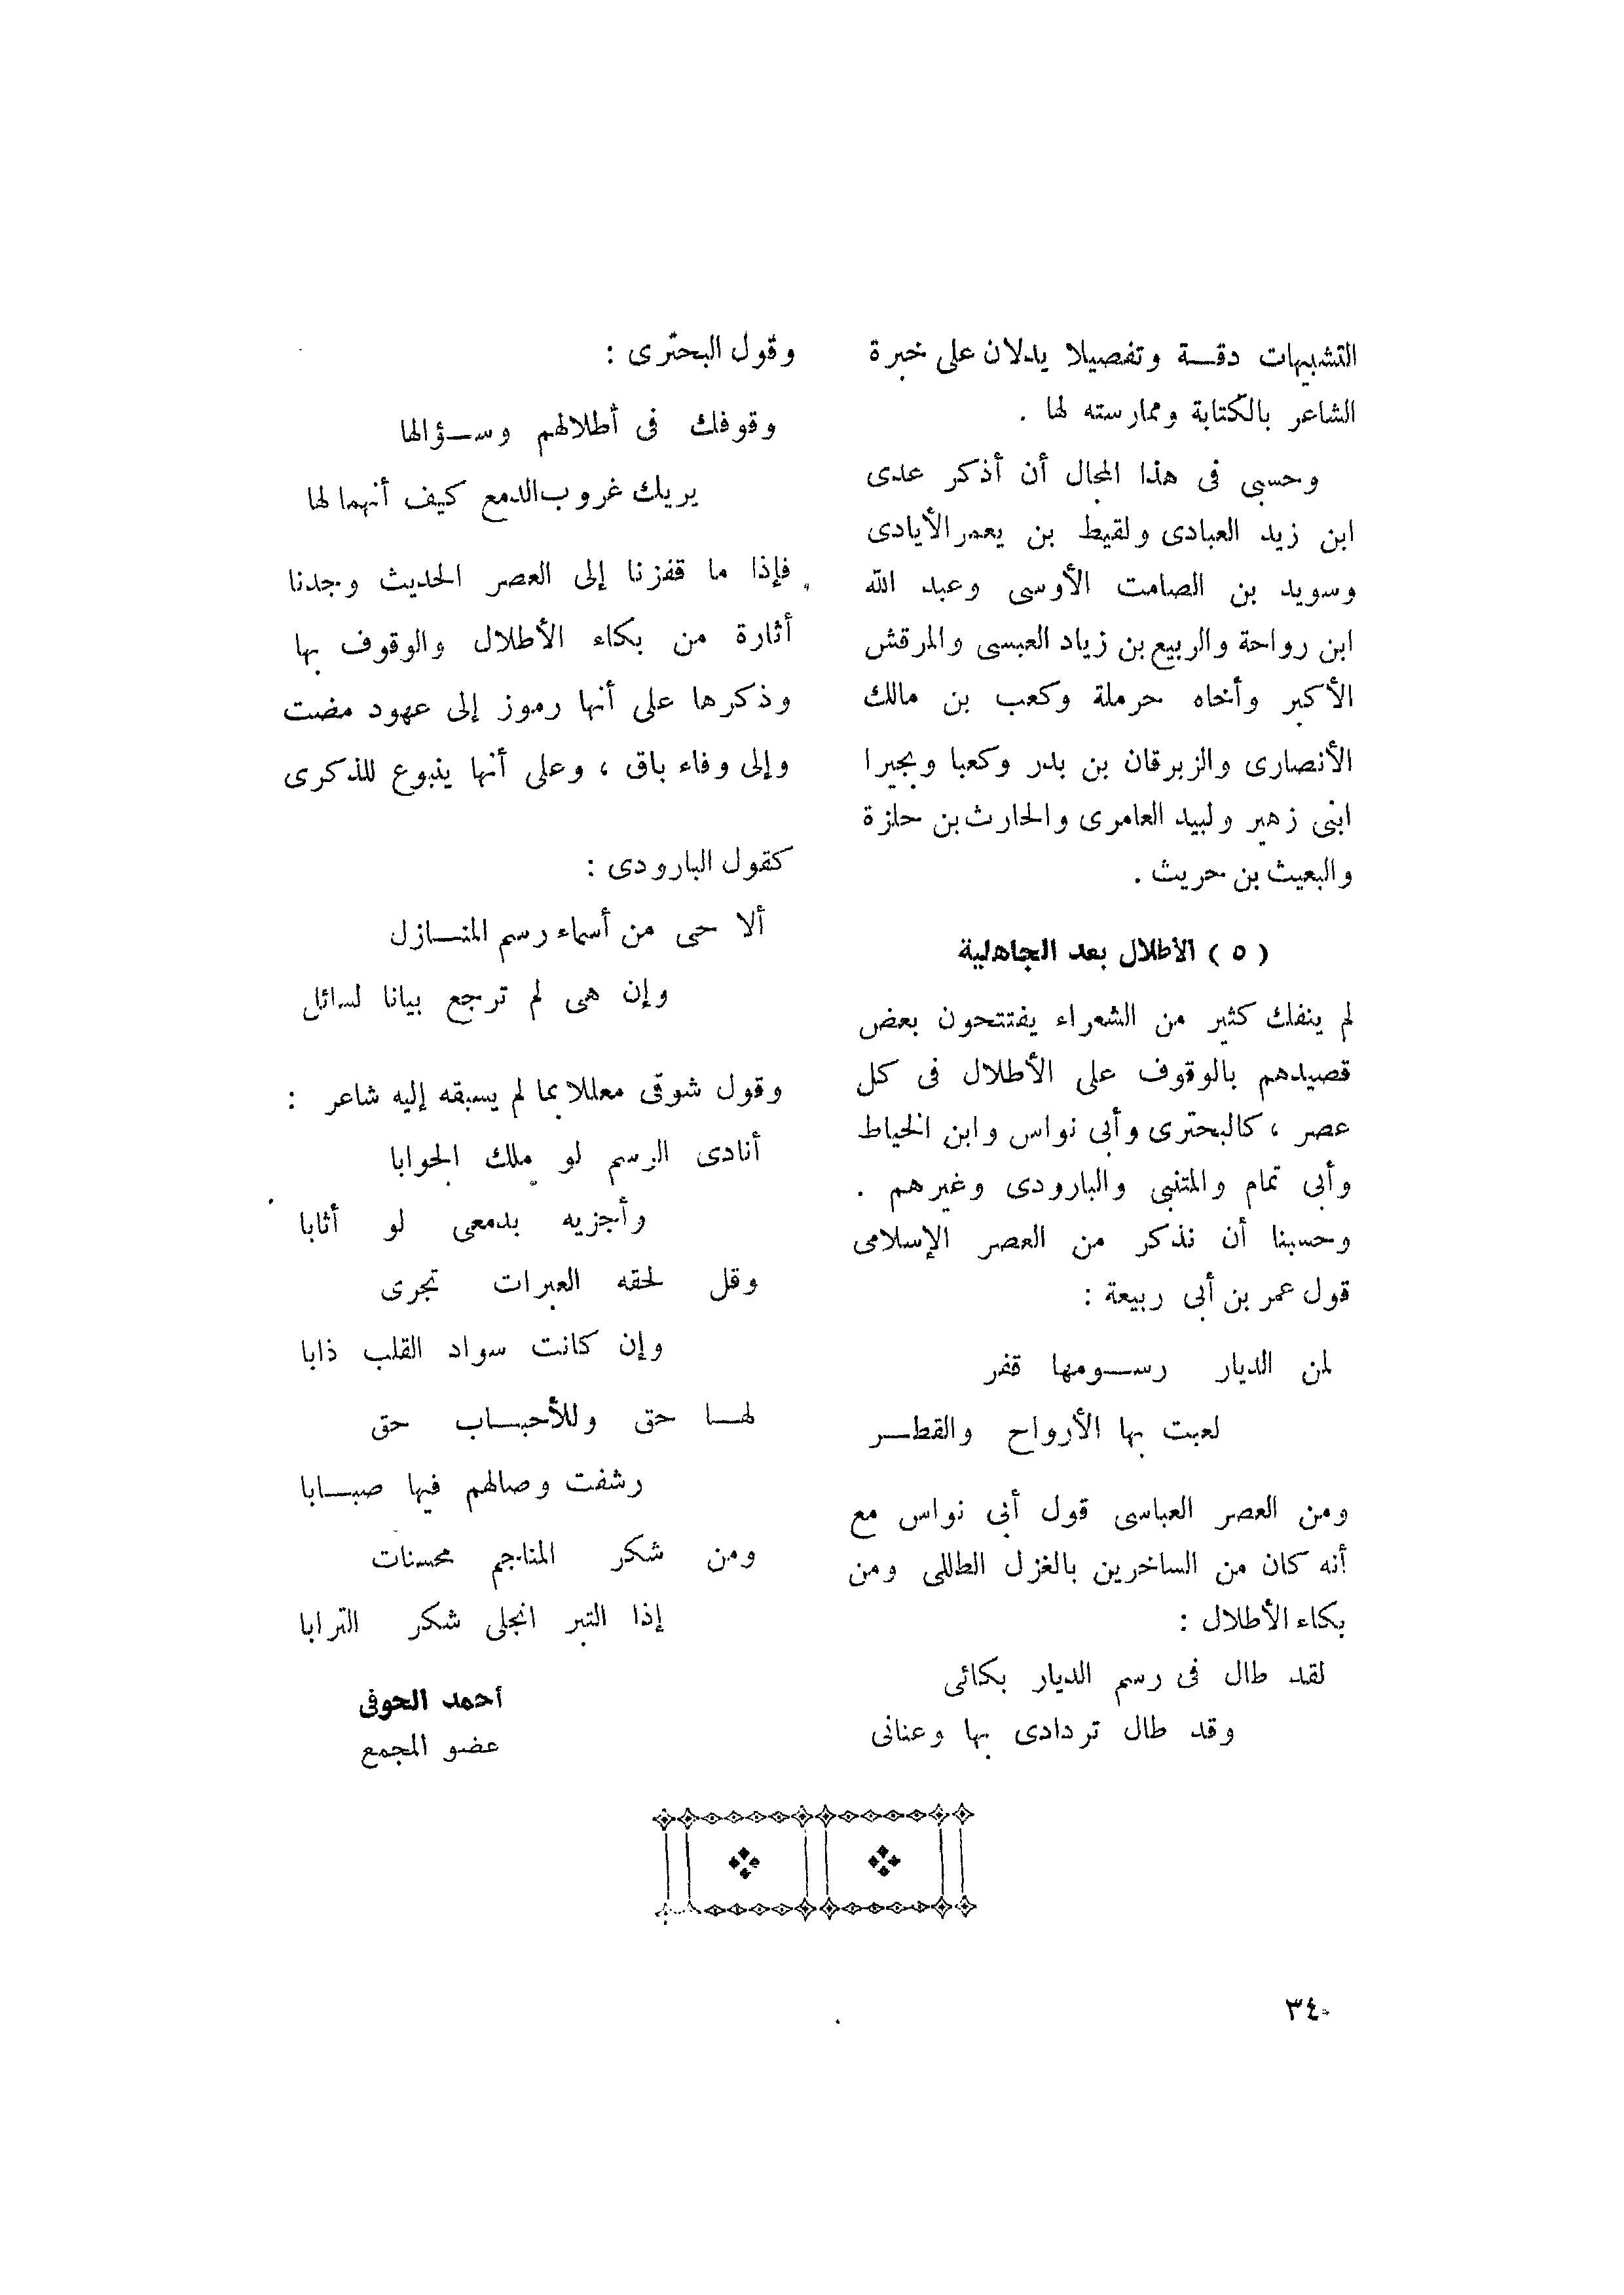 التشبيهات دقة وتفصيلا يدلان على خبرة
الشاعر بالكتابة وممارسته لها .
وحسبى فى هذا المجال أن أذكر عدى
ابن زيد العبادى ولقيط بن يعمر الأيادى
وسويد بن الصامت الأوسى وعبد الله
ابن رواحة والربيع بن زياد العبسى والمرقش
الأكبر وأخاه حرملة وكعب بن مالك
الأنصارى والزبرقان بن بدر وكعبا وبجيرا
ابنى زهير ولبيد العامرى والحارث بن حلزة
والبعيث بن حريث .
( ٥ ) الأطلال بعد الجاهلية
لم ينفك كثير من الشعراء يفتتحون بعض
قصيدهم بالوقوف على الأطلال فى كل
عصر ، كالبحترى وأبى نواس وابن الخياط
وأبى تمام والمتنبى والبارودى وغيرهم .
وحسبنا أن نذكر من العصر الإسلامى
قول عمر بن أبى ربيعة :
لمن الديار رسومها قفر
لعبت بها الأرواح والقطر
ومن العصر العباسى قول أبى نواس مع
أنه كان من الساخرين بالغزل الطللى ومن
بكاء الأطلال :
لقد طال فى رسم الديار بكائى
وقد طال تردادى بها وعنانى
وقول البحترى :
وقوفك فى أطلالهم وسؤالها
يريك غروب الدمع كيف أنهما لها
فإذا ما قفزنا إلى العصر الحديث وجدنا
أثارة من بكاء الأطلال والوقوف بها
وذكرها على أنها رموز إلى عهود مضت
وإلى وفاء باق ، وعلى أنها ينبوع للذكرى
كقول البارودى :
ألا حى من أسماء رسم المنازل
وإن هى لم ترجع بيانا لسائل
وقول شوقى معللا بما لم يسبقه إليه شاعر :
أنادى الرسم لو ملك الجوابا
وأجزيه بدمعى لو أثابا
وقل لحقه العبرات تجرى
وإن كانت سواد القلب ذابا
لها حق وللأحباب حق
رشفت وصالهم فيها صبابا
ومن شكر المناجم محسنات
إذا التبر انجلى شكر الترابا
أحمد الحوفى
عضو المجمع
٣٤٠